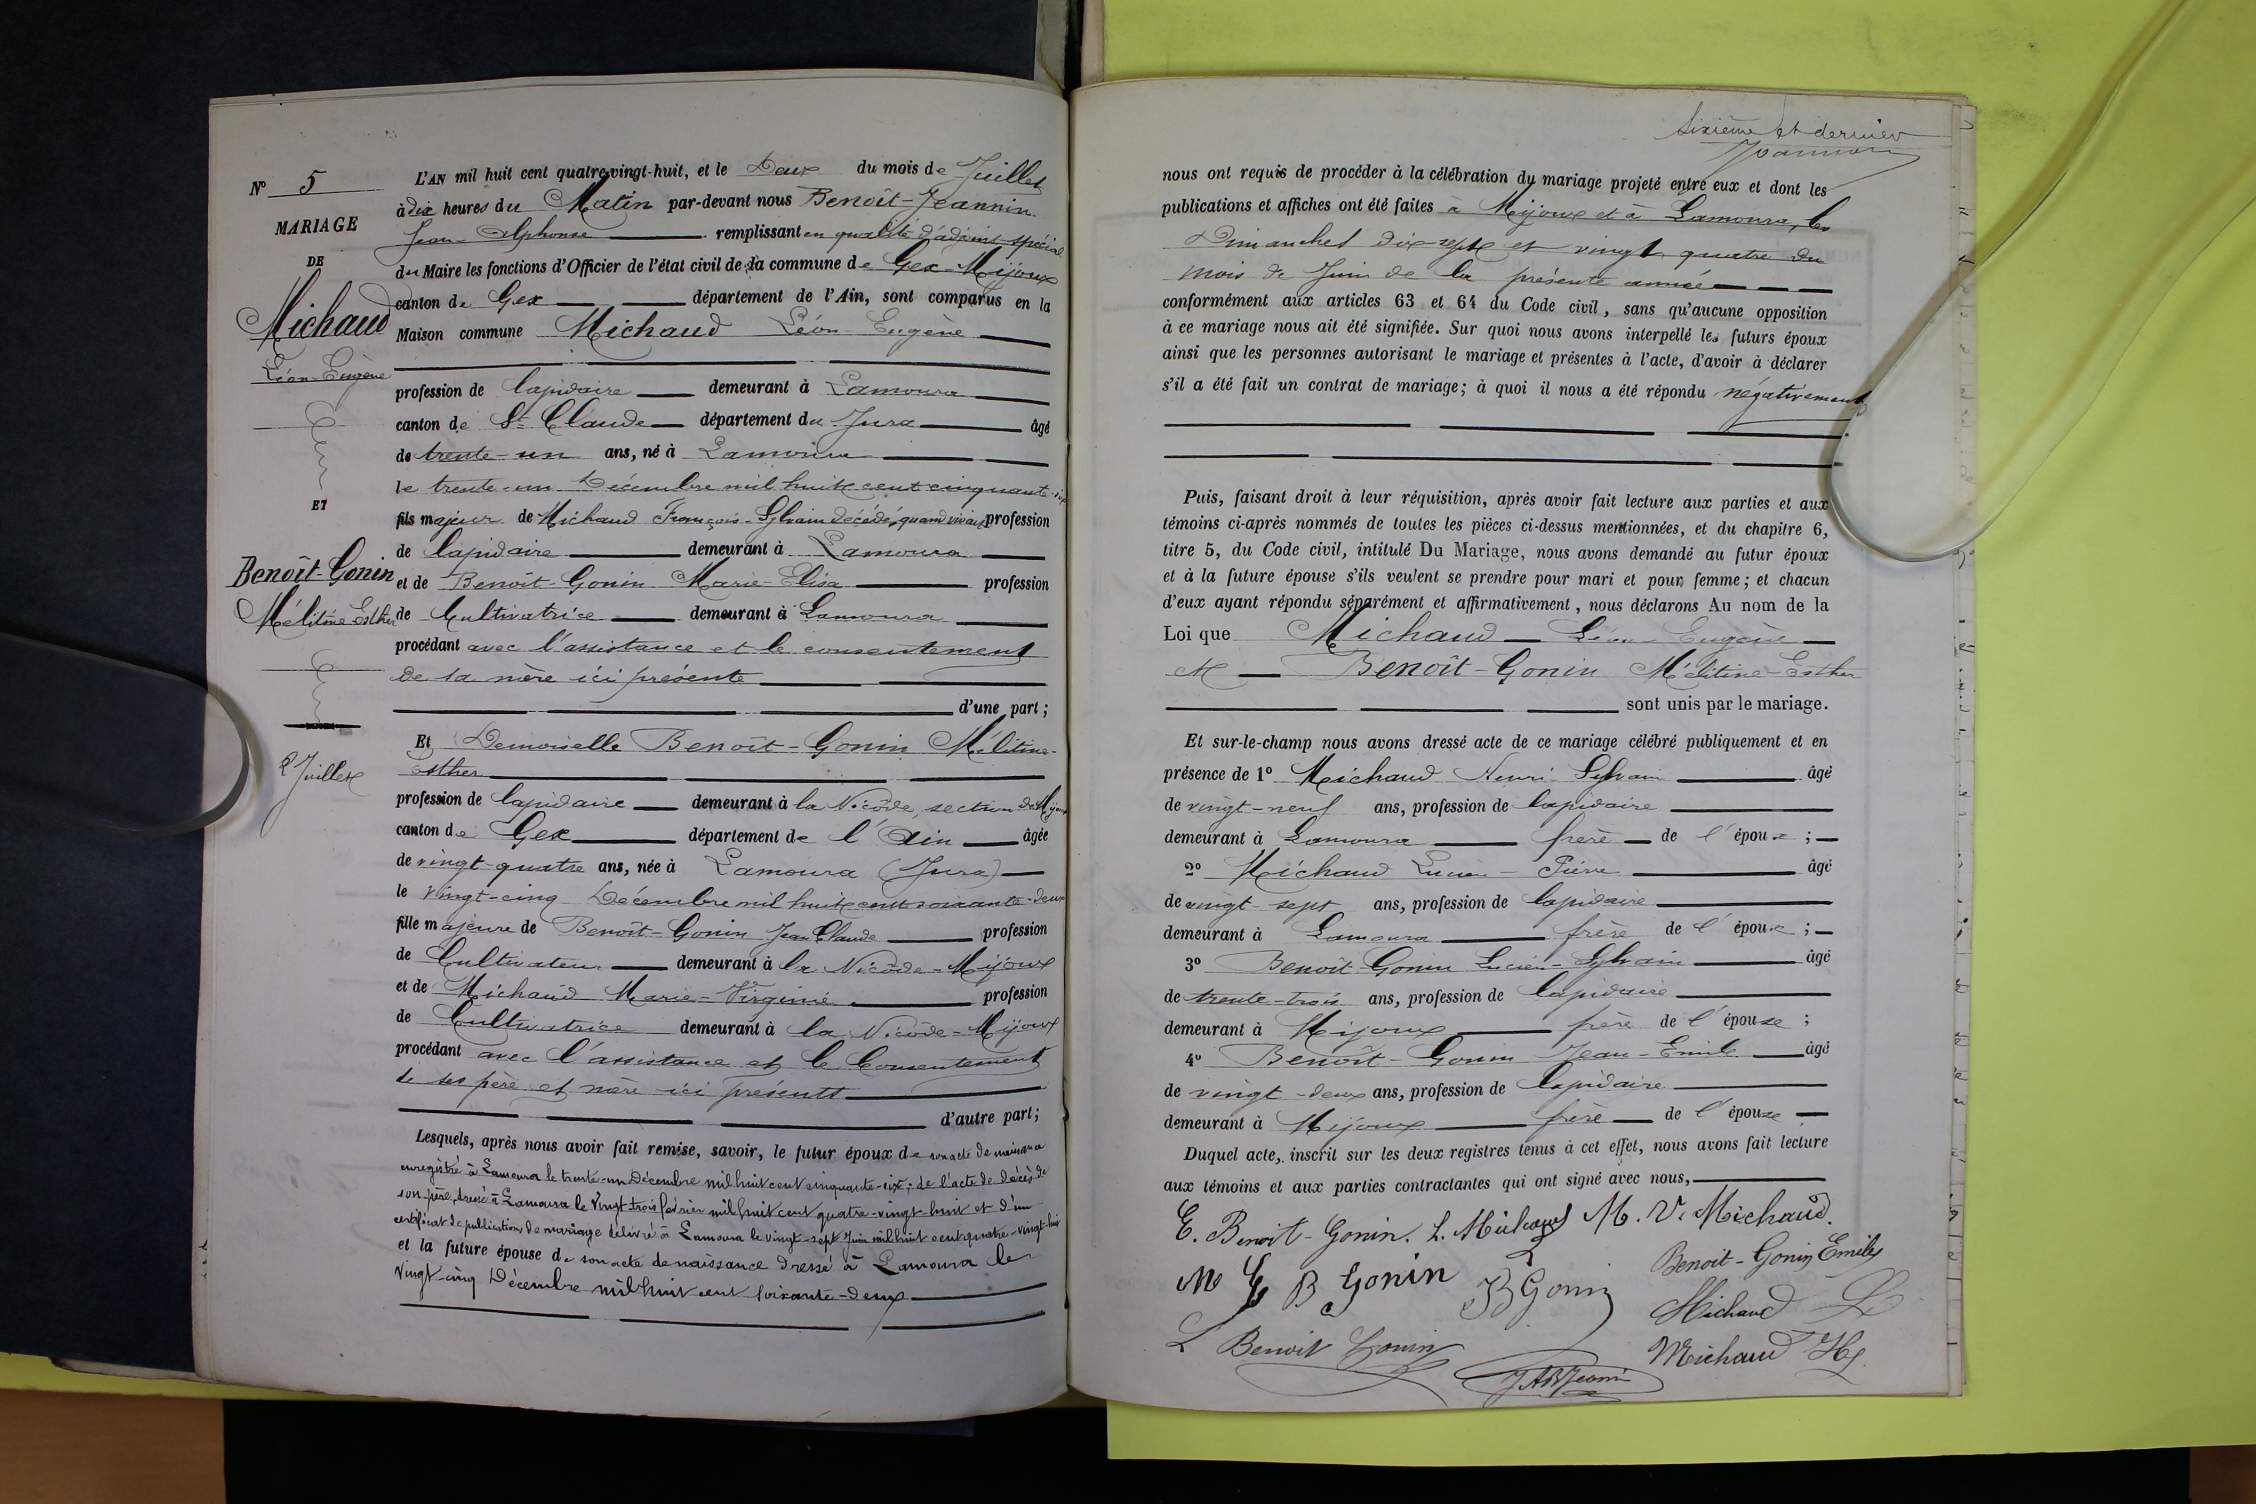 N° 5
MARIAGE
DE
Michaud
Léon-Eugène
ET
Benoît-Gonin
Mélitine Esther
2 Juillet
L'AN mil huit cent quatre-vingt-huit, et le Deux du mois de Juillet
à dix heures du Matin par-devant nous Benoît-Jeannin
Jean-Alphonse remplissant en qualité d'adjoint spécial
du Maire les fonctions d'Officier de l'état civil de la commune de Gex-Mijoux
canton de Gex département de l'Ain, sont comparus en la
Maison commune Michaud Léon-Eugène
profession de lapidaire demeurant à Lamoura
canton de St Claude département du Jura âgé
de trente-un ans, né à Lamoura
le trente-un Décembre mil huit cent cinquante-six
fils majeur de Michaud François-Sylvain décédé, quand vivait profession
de lapidaire demeurant à Lamoura
et de Benoît-Gonin Marie-Elisa profession
de Cultivatrice demeurant à Lamoura
procédant avec l'assistance et le consentement
de sa mère ici présente
d'une part;
Et Demoiselle Benoît-Gonin Mélitine-
Esther
profession de lapidaire demeurant à la Nicôde, section de Mijoux
canton de Gex département de l'Ain âgée
de vingt-quatre ans, née à Lamoura (Jura)
le vingt-cinq Décembre mil huit cent soixante-deux
fille majeure de Benoît-Gonin Jean Claude profession
de Cultivateur demeurant à la Nicôde-Mijoux
et de Michaud Marie-Virginie profession
de Cultivatrice demeurant à la Nicôde-Mijoux
procédant avec l'assistance et le Consentement
de ses père et mère ici présents
d'autre part;
Lesquels, après nous avoir fait remise, savoir, le futur époux de son acte de naissance
enregistré à Lamoura le trente-un Décembre mil huit cent cinquante-six; de l'acte de décès de
son père, dressé à Lamoura le vingt-trois février mil huit cent quatre-vingt-huit et d'un
certificat de publications de mariage délivré à Lamoura le vingt-sept Juin mil huit cent quatre-vingt-huit
et la future épouse de son acte de naissance dressé à Lamoura le
vingt-cinq Décembre mil huit cent soixante-deux
Sixième et dernier
nous ont requis de procéder à la célébration du mariage projeté entre eux et dont les
publications et affiches ont été faites à Mijoux et à Lamoura, les
Dimanches dix sept et vingt quatre du
mois de Juin de la présente année
conformément aux articles 63 et 64 du Code civil, sans qu'aucune opposition
à ce mariage nous ait été signifiée. Sur quoi nous avons interpellé les futurs époux
ainsi que les personnes autorisant le mariage et présentes à l'acte, d'avoir à déclarer
s'il a été fait un contrat de mariage; à quoi il nous a été répondu négativement
Puis, faisant droit à leur réquisition, après avoir fait lecture aux parties et aux
témoins ci-après nommés de toutes les pièces ci-dessus mentionnées, et du chapitre 6,
titre 5, du Code civil, intitulé Du Mariage, nous avons demandé au futur époux
et à la future épouse s'ils veulent se prendre pour mari et pour femme; et chacun
d'eux ayant répondu séparément et affirmativement, nous déclarons Au nom de la
Loi que Michaud Léon Eugène
et Benoît-Gonin Mélitine-Esther
sont unis par le mariage.
Et sur-le-champ nous avons dressé acte de ce mariage célébré publiquement et en
présence de 1° Michaud Henri Sylvain âgé
de vingt-neuf ans, profession de lapidaire
demeurant à Lamoura frère de l'époux;
2° Michaud Lucien-Pierre âgé
de vingt-sept ans, profession de lapidaire
demeurant à Lamoura frère de l'époux;
3° Benoît-Gonin Lucien-Sylvain âgé
de trente-trois ans, profession de lapidaire
demeurant à Mijoux frère de l'épouse;
4° Benoît-Gonin Jean-Emile âgé
de vingt-deux ans, profession de lapidaire
demeurant à Mijoux frère de l'épouse
Duquel acte, inscrit sur les deux registres tenus à cet effet, nous avons fait lecture
aux témoins et aux parties contractantes qui ont signé avec nous,
E. Benoit-Gonin. L. Michaud M. V. Michaud.
M E B Gonin JB Gonin Benoit-Gonin Emile
Michaud L
L Benoit Gonin Michaud H